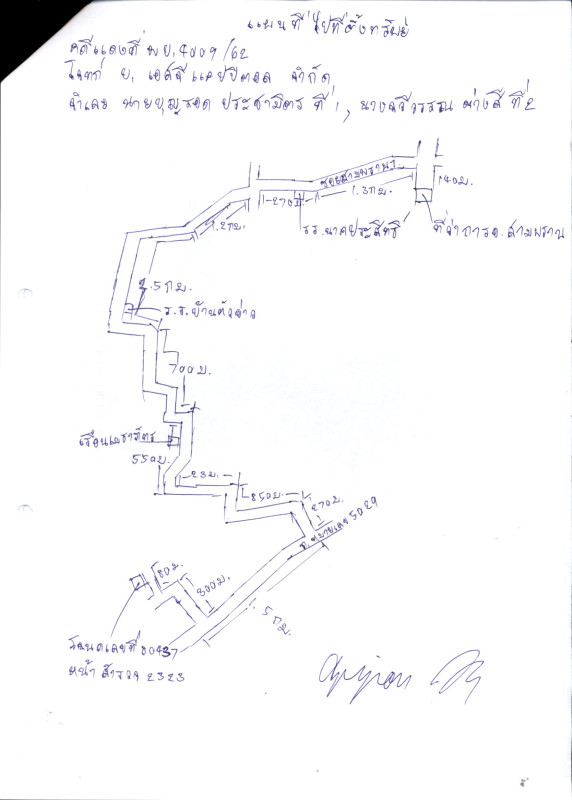 แผนที่ไปที่ตั้งทรัพย์
คดีแดงที่ ผบ.4009/62
โจทก์ บ. เอสจี แคปปิตอล จำกัด
จำเลย นายบุญรอด ประชามิตร ที่ 1, นางฉวีวรรณ ที่ 2
ซอยสามพราน 1
40ม.
270ม.
1.3กม.
ร.ร.นาคประสิทธิ์
ที่ว่าการอ.สามพราน
1.2กม.
2.5กม.
ร.ร.บ้านดงเกตุ
700ม.
550ม.
23ม.
850ม.
270ม.
ถ.หมายเลข 5029
80ม.
300ม.
1.5กม.
โฉนดเลขที่ 80437
หน้าสำรวจ 2323